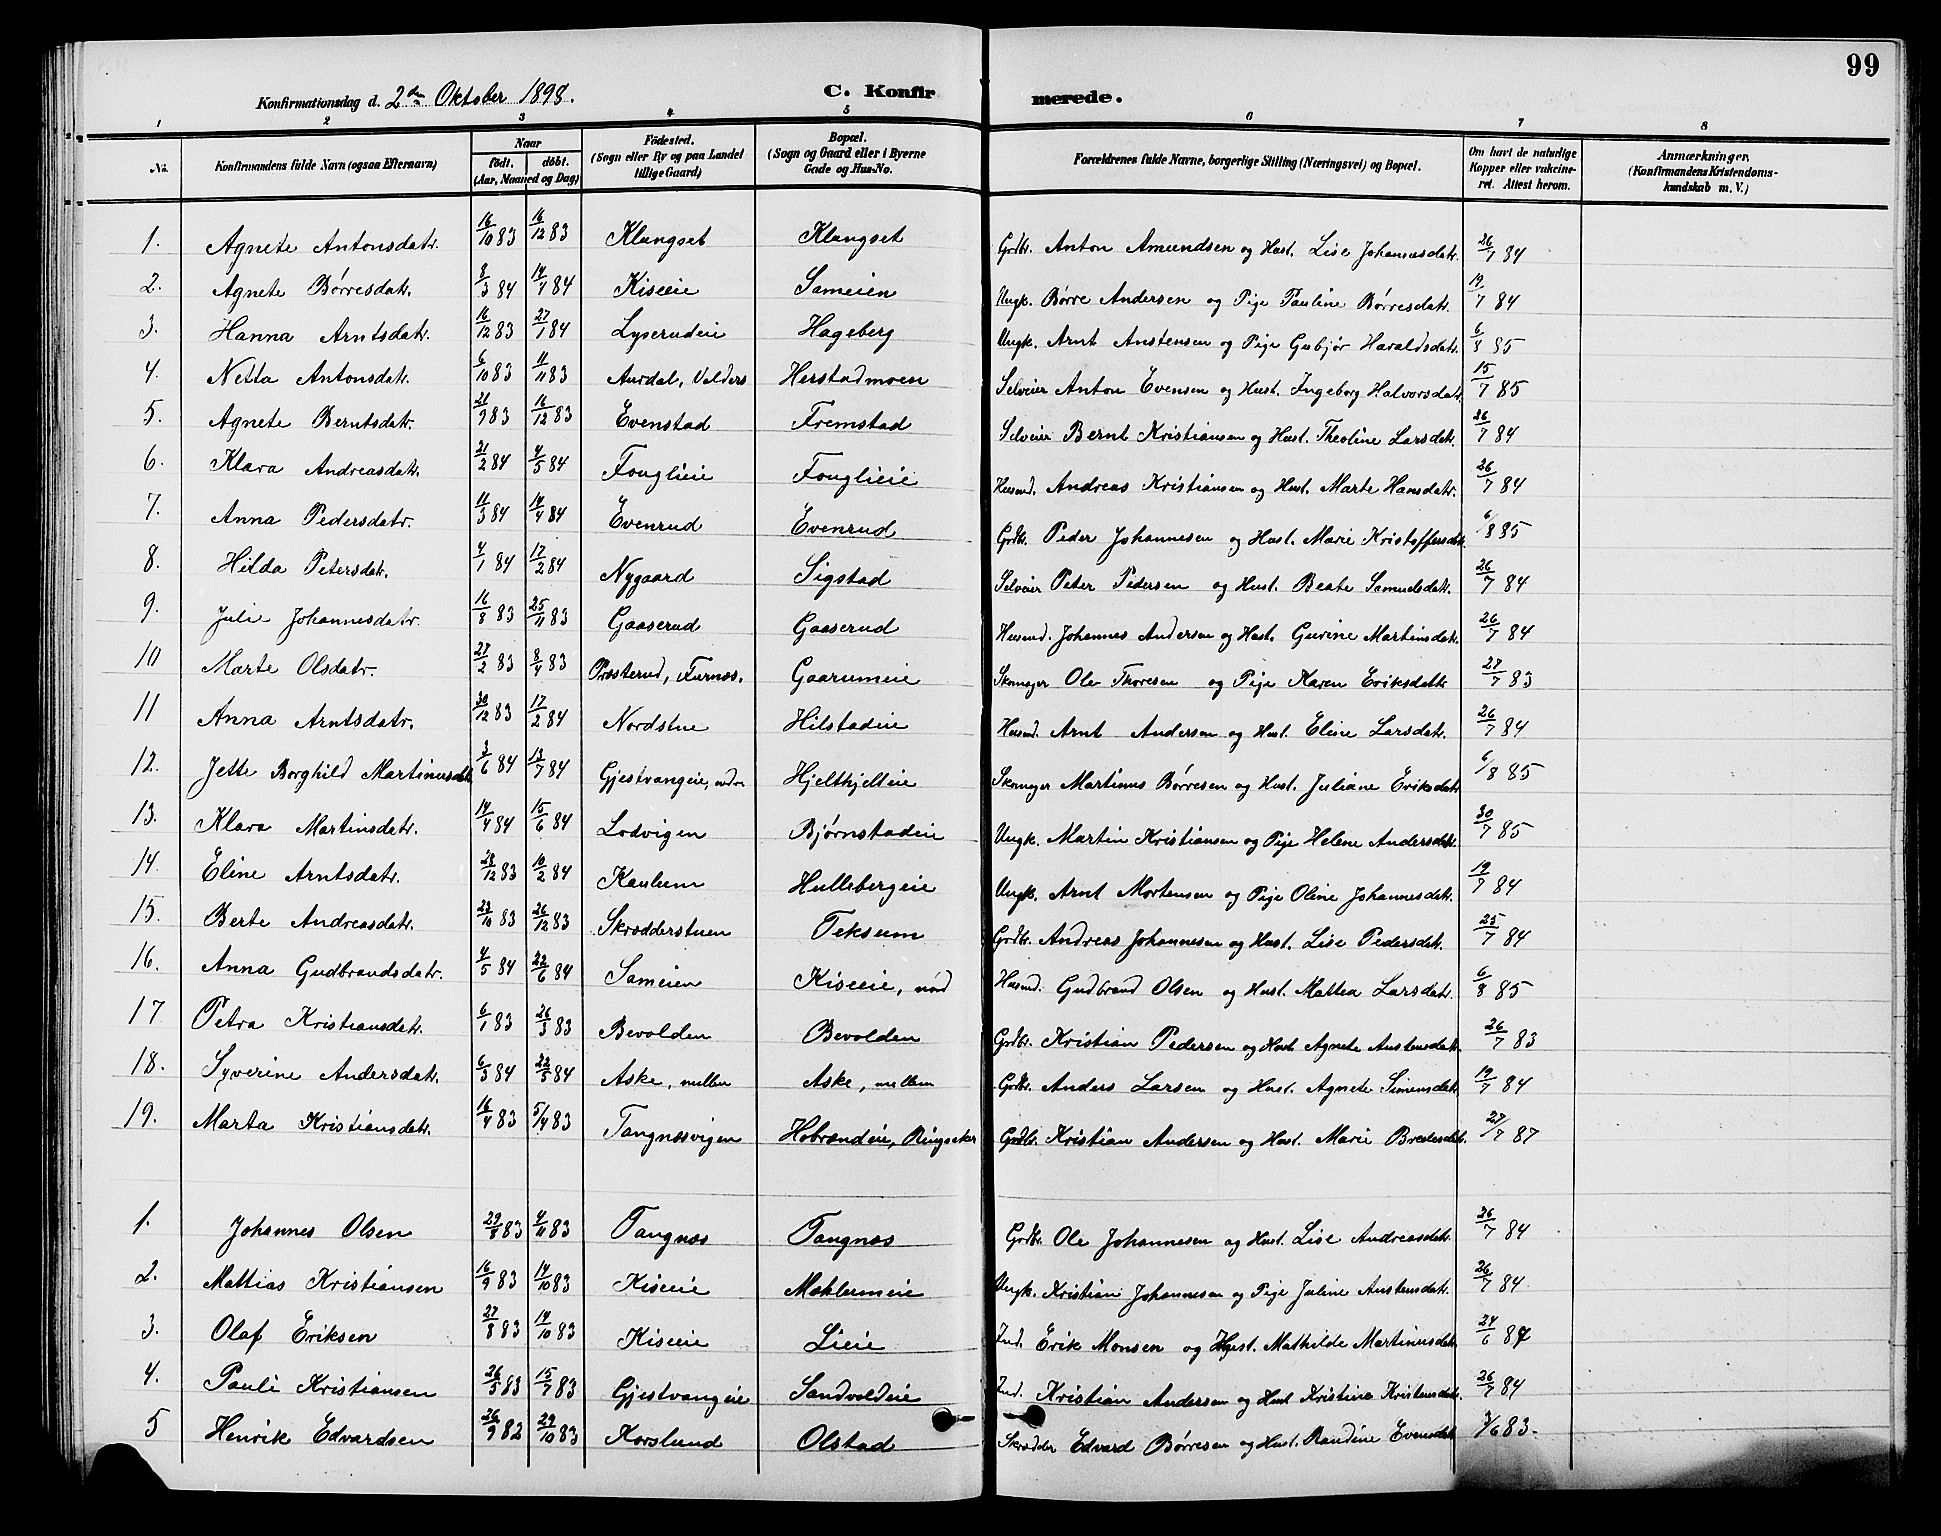 99
Konfirmationsdag d. 2den Oktober 1898. C. Konfirmerede.
1 2 3 4 5 6 7 8
No. Konfirmandens fulde Navn (ogsaa Efternavn) Naar født. døbt. (Aar, Maaned og Dag) Fødested. (Sogn eller By og paa Landet tillige Gaard) Bopæl. (Sogn og Gaard eller i Byerne Gade og Hus-No. Forældrenes fulde Navne, borgerlige Stilling (Næringsvei) og Bopæl. Om havt de naturlige Kopper eller vakcineret. Attest herom. Anmærkninger. (Konfirmandens Kristendomskundskab m. V.)
1. Agnete Antonsdatr. 16/10 83 16/12 83 Klangset Klangset Grdbr. Anton Amundsen og Hust. Lise Johannesdatr. 26/7 84
2. Agnete Børresdatr. 8/3 84 14/4 84 Kiseeie Sameien Ungk. Børre Andersen og Pige Pauline Børresdatr. 19/7 84
3. Hanna Arntsdatr. 16/12 83 27/1 84 Lyserudeie Hageberg Ungk. Arnt Anstensen og Pige Gubjør Haraldsdatr. 6/8 85
4. Netta Antonsdatr. 6/10 83 11/11 83 Aurdal, Valders Herstadmoen Selveier Anton Evensen og Hust. Ingeborg Halvorsdatr. 15/7 85
5. Agnete Berntsdatr. 21/9 83 16/12 83 Evenstad Fremstad Selveier Bernt Kristiansen og Hust. Theoline Larsdatr. 26/7 84
6. Klara Andreasdatr. 21/2 84 4/5 84 Fouglieie Fouglieie Husmd. Andreas Kristiansen og Hust. Marte Hansdatr. 26/7 84
7. Anna Pedersdatr. 11/3 84 14/4 84 Evenrud Evenrud Grdbr. Peder Johannesen og Hust. Marie Kristoffersdatr. 6/8 85
8. Hilda Petersdatr. 4/1 84 17/2 84 Nygaard Sigstad Selveier Peter Pedersen og Hust. Beate Samuelsdatr. 26/7 84
9. Julie Johannesdatr. 16/8 83 25/11 83 Gaaserud Gaaserud Husmd. Johannes Andersen og Hust. Gurine Martinsdatr. 26/7 84
10 Marte Olsdatr. 27/2 83 8/4 83 Præsterud, Furnæs. Gaarumeie Skomager Ole Thoresen og Pige Karen Eriksdatr. 27/7 83
11 Anna Arntsdatr. 30/12 83 17/2 84 Nordstue Hilstadeie Husmd. Arnt Andersen og Hust. Eline Larsdatr. 26/7 84
12. Jette Borghild Martinusdatr. 3/6 84 13/7 84 Gjestvangeie, Hjeltkjelteie Skomager Martinus Børresen og Hust. Juliane Eriksdatr. 6/8 85
13. Klara Martinsdatr. 14/4 84 15/6 84 Lodvigen Bjørnstadeie Ungk. Martin Kristiansen og Pige Helene Andersdatr. 30/7 85
14. Eline Arntsdatr. 28/12 83 10/2 84 Kaulum Hullebergeie Ungk. Arnt Mortensen og Pige Oline Johannesdatr. 19/7 84
15. Berte Andreasdatr. 23/10 83 26/12 83 Skrædderstuen Teksum Grdbr. Andreas Johannesen og Hust. Lise Pedersdatr. 25/7 84
16. Anna Gudbrandsdatr. 4/5 84 22/6 84 Sameien Kiseeie, nød Husmd. Gudbrand Olsen og Hust. Mattea Larsdatr. 6/8 85
17 Petra Kristiansdatr. 6/1 83 26/3 83 Bevolden Bevolden Grdbr. Kristian Pedersen og Hust. Agnete Austensdatr. 26/7 83
18. Syverine Andersdatr. 6/3 84 22/5 84 Aske, mellem Aske, mellem Grdbr. Anders Larsen og Hust. Agnete Simensdatr. 19/7 84
19. Marta Kristiansdatr. 16/4 83 5/4 83 Tangnæsvigen Hobrandeie, Ringsaker Grdbr. Kristian Andersen og Hust. Marie Bredesdatr. 27/7 87
1. Johannes Olsen 29/8 83 4/11 83 Tangnæs Tangnæs Grdbr. Ole Johannesen og Hust. Lise Andreasdatr. 26/7 84
2. Mattias Kristiansen 16/9 83 14/10 83 Kiseeie Mæhlumeie Ungk. Kristian Johannesen og Pige Juline Austensdatr. 26/7 84
3. Olaf Eriksen 27/8 83 14/10 83 Kiseeie Lieie Ind. Erik Monsen og Hust. Mathilde Martinusdatr. 24/6 87
4. Pauli Kristiansen 26/5 83 15/7 83 Gjestvangeie Sandvoldeie Ind. Kristian Andersen og Hust Kristine Kristensdatr. 26/7 84
5 Henrik Edvardsen 26/9 82 29/10 83 Korslund Olstad Skrædder Edvard Børresen og Hust. Randine Evensdatr. 3/6 83.